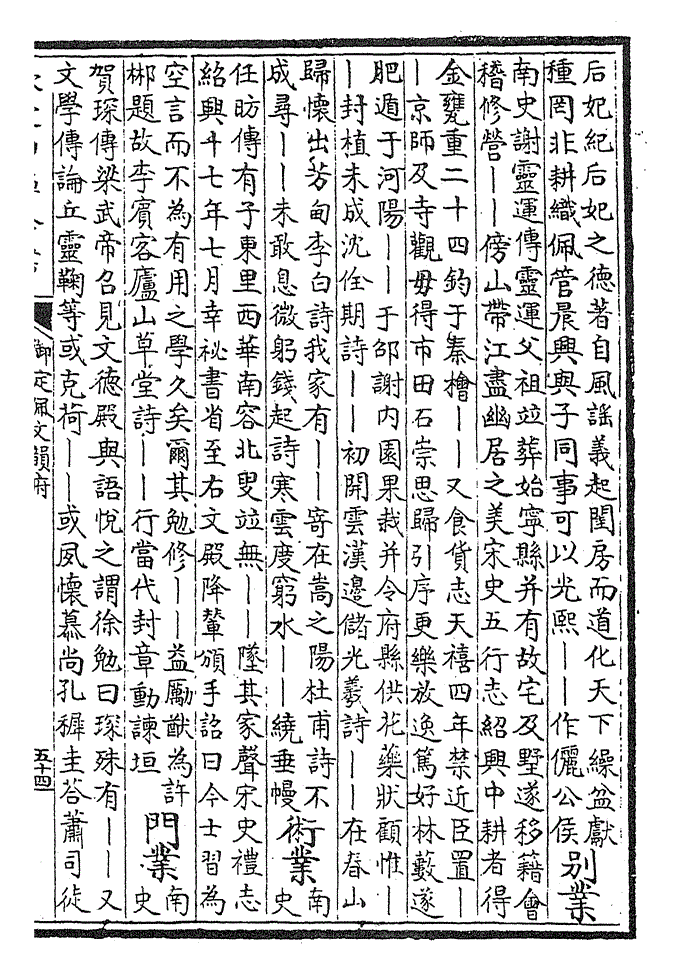 后妃紀后妃之德著自風謠義起閨房而道化天下繰盆獻
種罔非耕織佩管晨興與子同事可以光熙——作儷公侯
別業
南史謝靈運傳靈運父祖竝葬始寧縣并有故宅及墅遂移籍會
稽修營——傍山帶江盡幽居之美宋史五行志紹興中耕者得
金甕重二十四鈞于秦檜——又食貨志天禧四年禁近臣置—
—京師及寺觀毋得市田石崇思歸引序更樂放逸篤好林藪遂
肥遁于河陽——于邵謝内園果栽并令府縣供花藥狀顧惟—
—封植未成沈佺期詩——初開雲漢邊儲光羲詩——在春山
歸懷出芳甸李白詩我家有——寄在嵩之陽杜甫詩不
成尋——未敢息微躬錢起詩寒雲度窮水——繞垂幔
術業
南
史
任昉傳有子東里西華南容北叟竝無——墜其家聲宋史禮志
紹興十七年七月幸祕書省至右文殿降輦頒手詔曰今士習為
空言而不為有用之學久矣爾其勉修——益厲猷為許
郴題故李賓客廬山草堂詩——行當代封章動諫垣
門業
南
史
賀琛傳梁武帝召見文德殿與語悅之謂徐勉曰琛殊有——又
文學傳論丘靈鞠等或克荷——或夙懷慕尚孔稺圭荅蕭司徒
御定佩文韻府
五十四